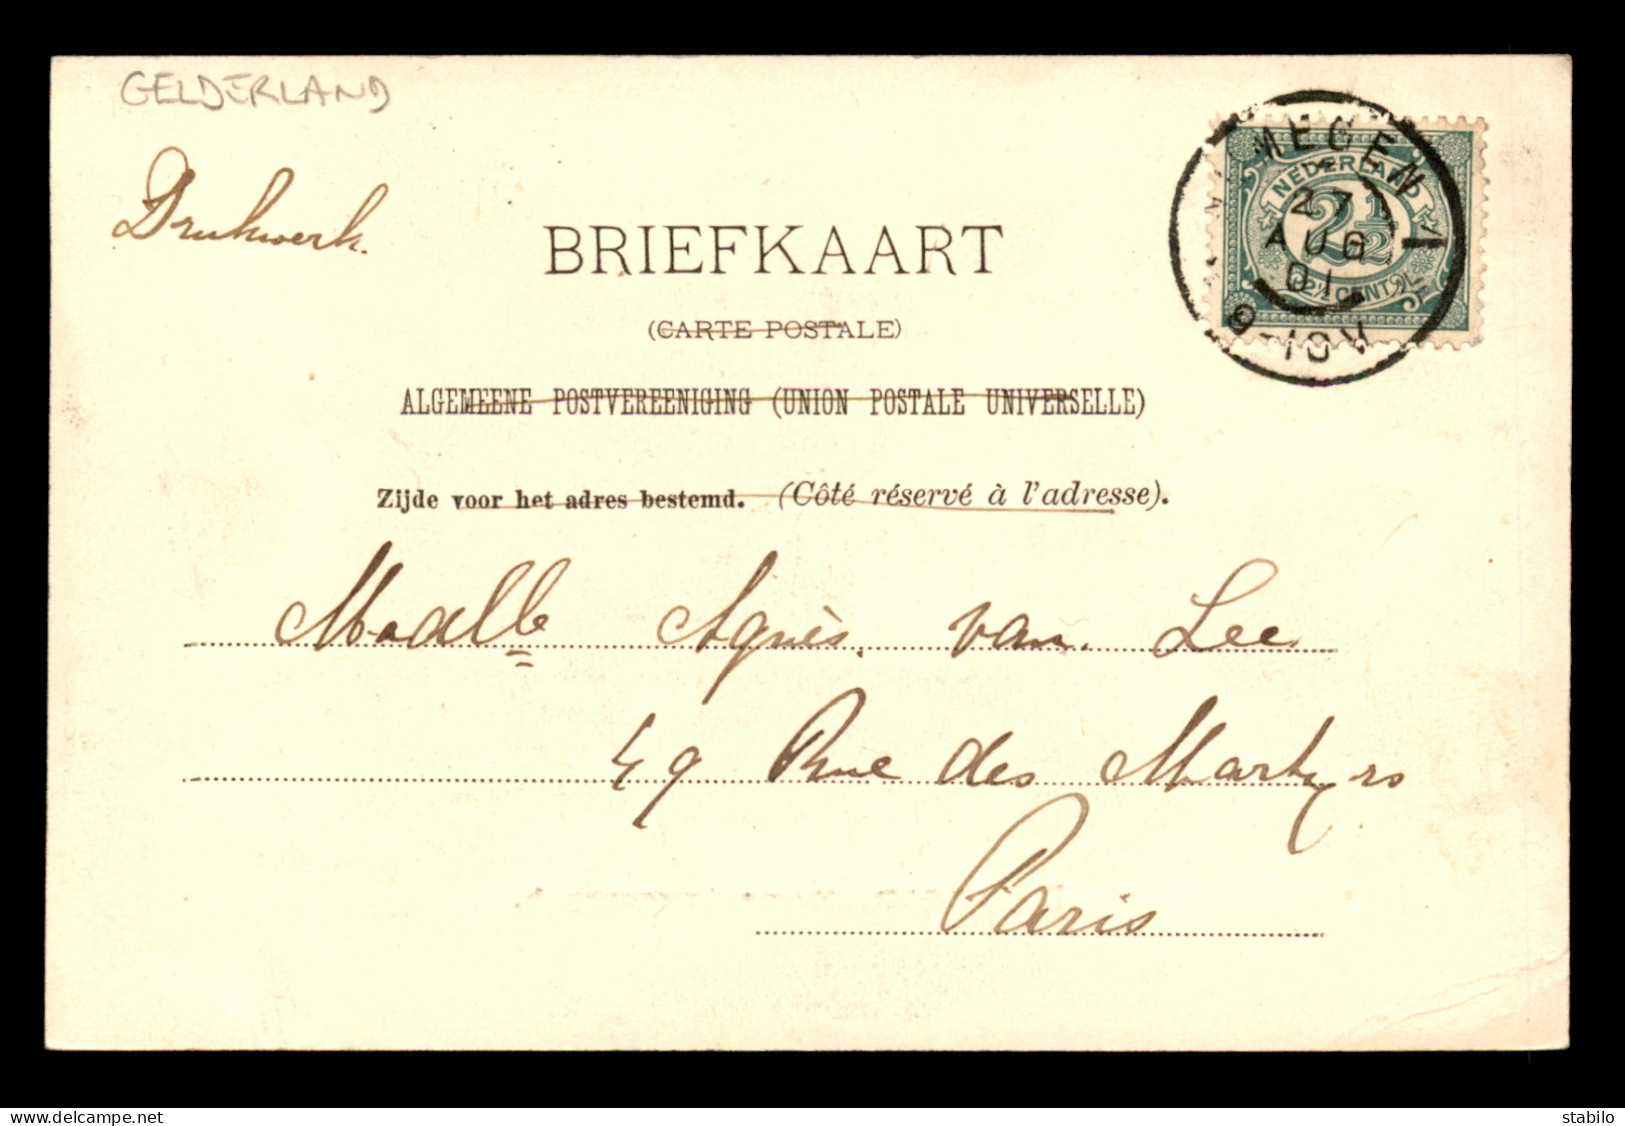 GELDERLAND
Drukwerk.
BRIEFKAART
(CARTE POSTALE)
ALGEMEENE POSTVEREENIGING (UNION POSTALE UNIVERSELLE)
Zijde voor het adres bestemd. (Côté réservé à l'adresse).
MEGEN
27
AUG
01
9-10V
NEDERLAND
2½
2½ CENT
Madlle Agnès van Lee
49 Rue des Martyrs
Paris
www.delcampe.net
stabilo